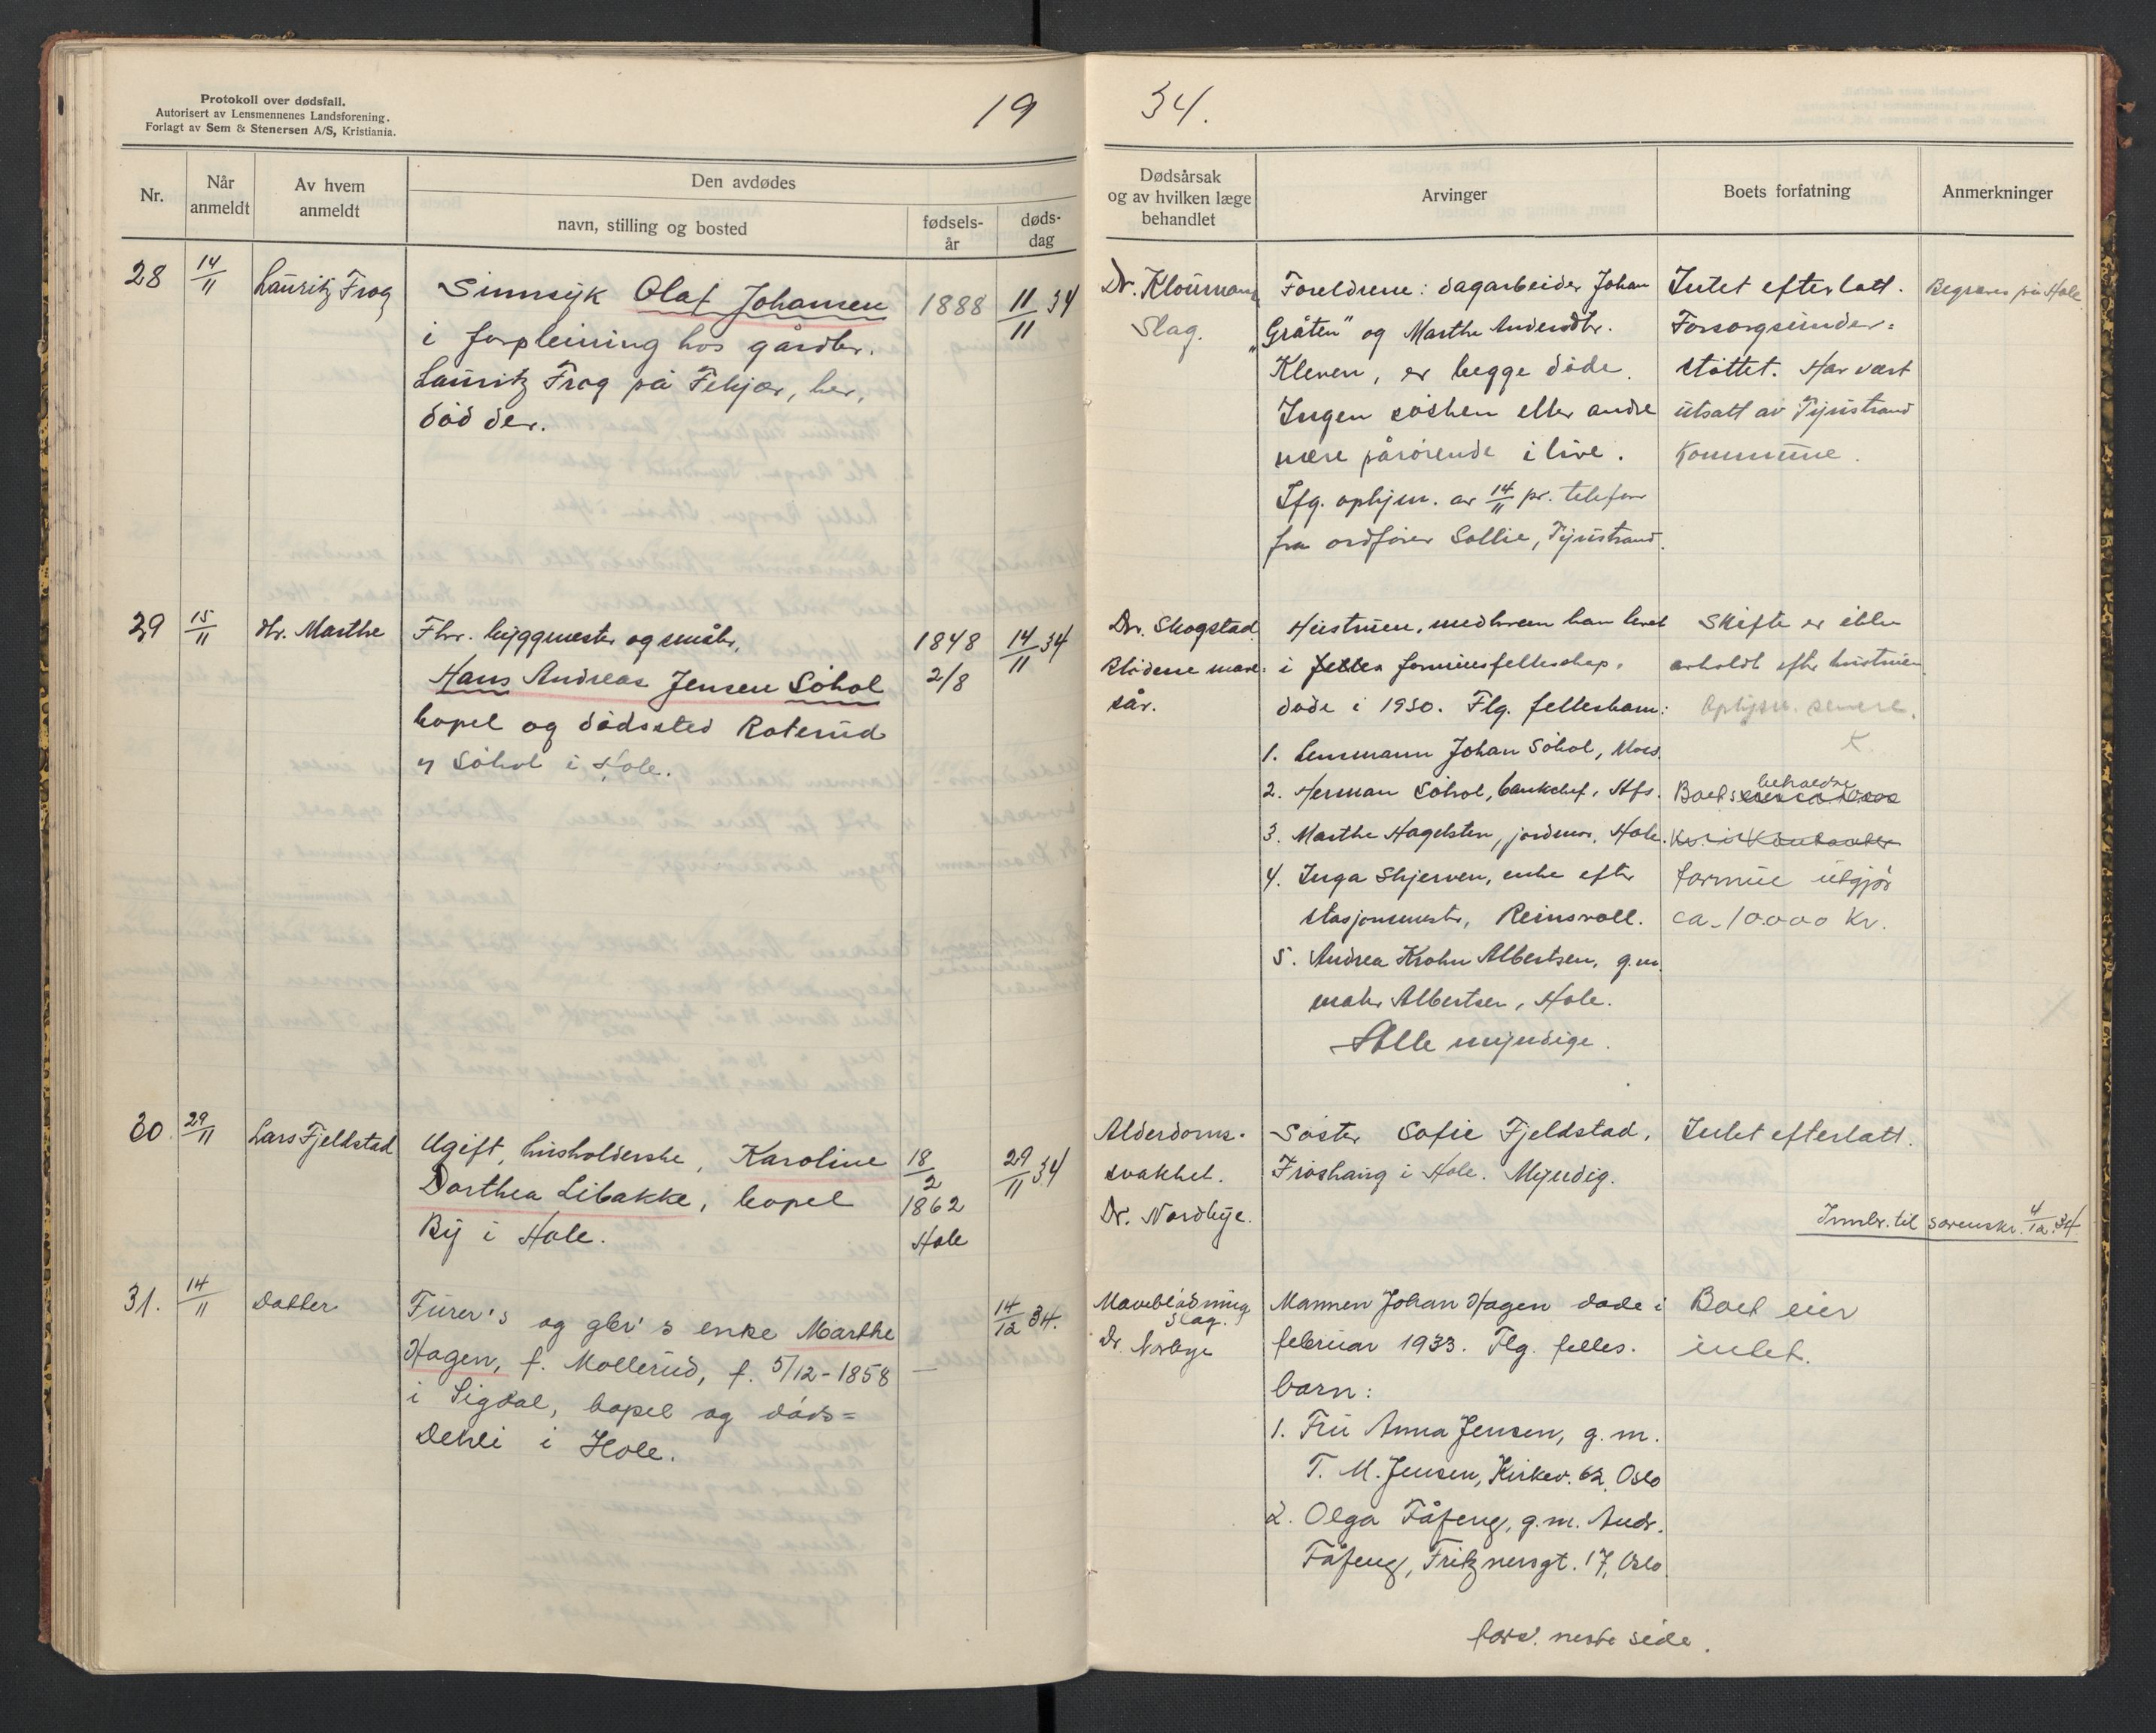 Protokoll over dødsfall.
Autorisert av Lensmennenes Landsforening.
Forlagt av Sem & Stenersen A/S, Kristiania.
19
34.
Nr.
Når anmeldt
Av hvem anmeldt
Den avdødes
navn, stilling og bosted
fødsels-år
døds-dag
Dødsårsak og av hvilken læge behandlet
Arvinger
Boets forfatning
Anmerkninger
28
14/11
Lauritz Frog
Sinnsyk Olaf Johansen
i forpleining hos gårdbr.
Lauritz Frog på Fekjær, her,
død der.
1888
11/11 34
Dr. Kloumann
Slag.
Foreldrene: dagarbeider Johan
"Gråten" og Marthe Andersdtr.
Kleven, er begge døde.
Ingen søsken eller andre
nære pårørende i live.
Ifg. ophysn. av 14/11 pr. telefon
fra ordfører Sollie, Tyristrand.
Intet efterlatt.
Forsorgsunder-
støttet. Har vært
utsatt av Tyristrand
Kommune.
Begraves på Hole
29
15/11
dtr. Marthe
Fhv. byggmester og småbr.
Hans Andreas Jensen Søhol
bopel og dødssted Roterud
u Søhol i Hole.
1848
2/8
14/11 34
Dr. Skogstad
Blødene mave-
sår.
Hustruen, med hvem han levet
i felles formuesfelleskap,
døde i 1930. Flg. fellesbarn:
1. Lensmann Johan Søhol, Moss.
2. Herman Søhol, banksjef, Hfs.
3. Marthe Hagelsten, jordmor, Hole.
4. Inga Skjerven, enke efter
stasjonsmester, Reinsvoll.
5. Andrea Krohn Albertsen, g.m.
maler Albertsen, Hole.
Alle myndige.
Skifte er ikke
avholdt efter hustruen.
Ophysn. senere.
K.
Boets beholdne
Kr. i Kontanter
formue utgjør
ca. 10.000 Kr.
30.
29/11
Lars Fjeldstad
Ugift, husholderske, Karoline
Dorthea Libakke, bopel
By i Hole.
18/2
1862
Hole
29/11 34
Alderdoms-
svakhet.
Dr. Nordbye.
Søster Sofie Fjeldstad,
Frøshaug i Hole. Myndig.
Intet efterlatt.
Innbr. til sorenskr. 4/12.34
31.
14/11
Datter
Furer's og gbr's enke Marthe
Hagen, f. Mollerud, f. 5/12-1858
i Sigdal, bopel og døds-
Dehli i Hole.
—
14/12 34.
Maveblødning
Slag.
Dr. Norbye
Mannen Johan Hagen døde i
februar 1933. Flg. felles-
barn:
1. Fru Anna Jensen, g.m.
T. M. Jensen, Kirkev. 62, Oslo
2. Olga Fåfeng, g.m. Andr.
Fåfeng, Fritznersgt. 17, Oslo
Boet eier
intet.
fors. neste side.